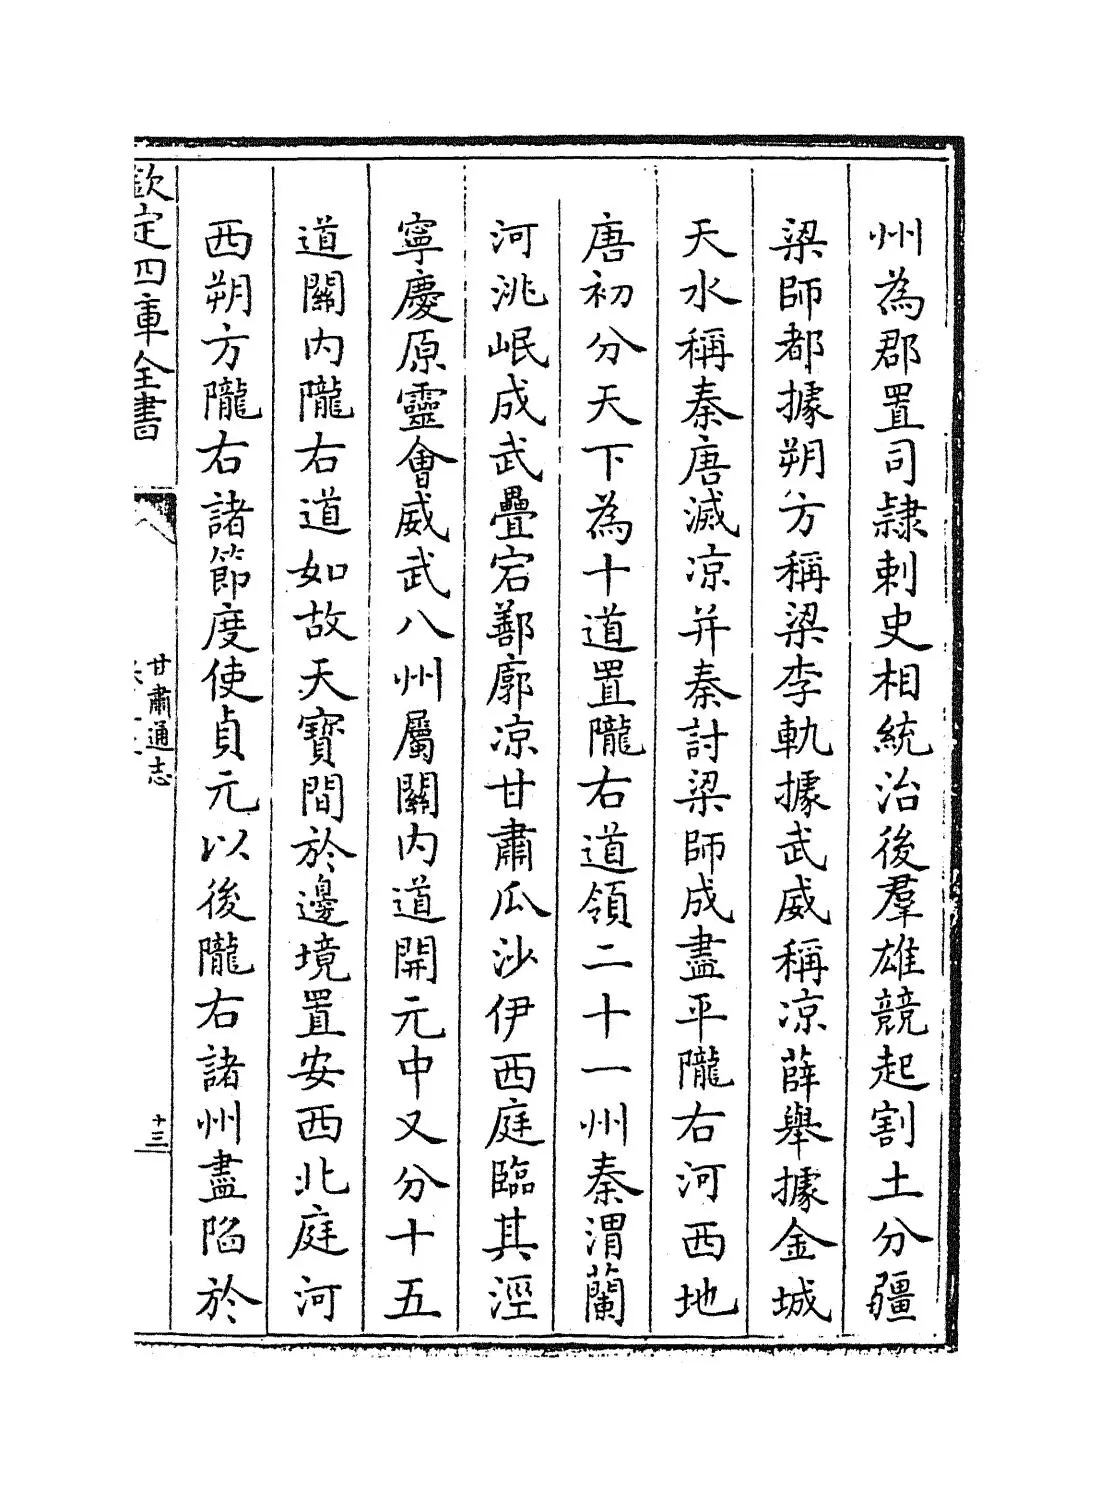 州為郡置司隷刺史相統治後羣雄競起割土分疆
梁師都據朔方稱梁李軌據武威稱凉薛舉據金城
天水稱秦唐滅凉并秦討梁師成盡平隴右河西地
唐初分天下為十道置隴右道領二十一州秦渭蘭
河洮岷成武疊宕鄯廓凉甘肅瓜沙伊西庭臨其涇
寧慶原靈會威武八州屬關内道開元中又分十五
道關内隴右道如故天寶間於邊境置安西北庭河
西朔方隴右諸節度使貞元以後隴右諸州盡陷於
欽定四庫全書
甘肅通志
十三